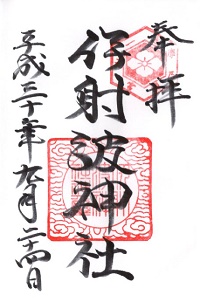 奉拝
伊射波神社
平成三十年九月二十四日